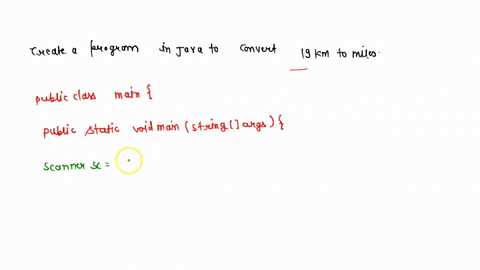 Create a program in Java to convert 19 km to miles.
public class main {
public static void main (string [] args) {
scanner sc =